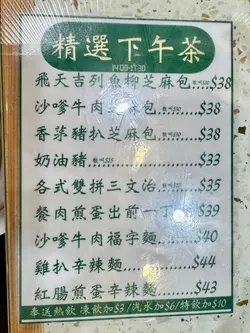 精選下午茶
14:00-17:30
飛天吉列魚柳芝麻包 $38
沙嗲牛肉芝麻包 $38
香茅豬扒芝麻包 $38
奶油豬 $33
各式雙拼三文治 $35
餐肉煎蛋出前一丁 $39
沙嗲牛肉福字麵 $40
雞扒辛辣麵 $44
紅腸煎蛋辛辣麵 $43
奉送熱飲 凍飲加$3/汽水加$6/特飲加$10